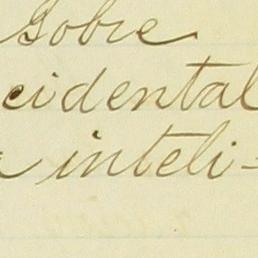 sobre
cidental
inteli-